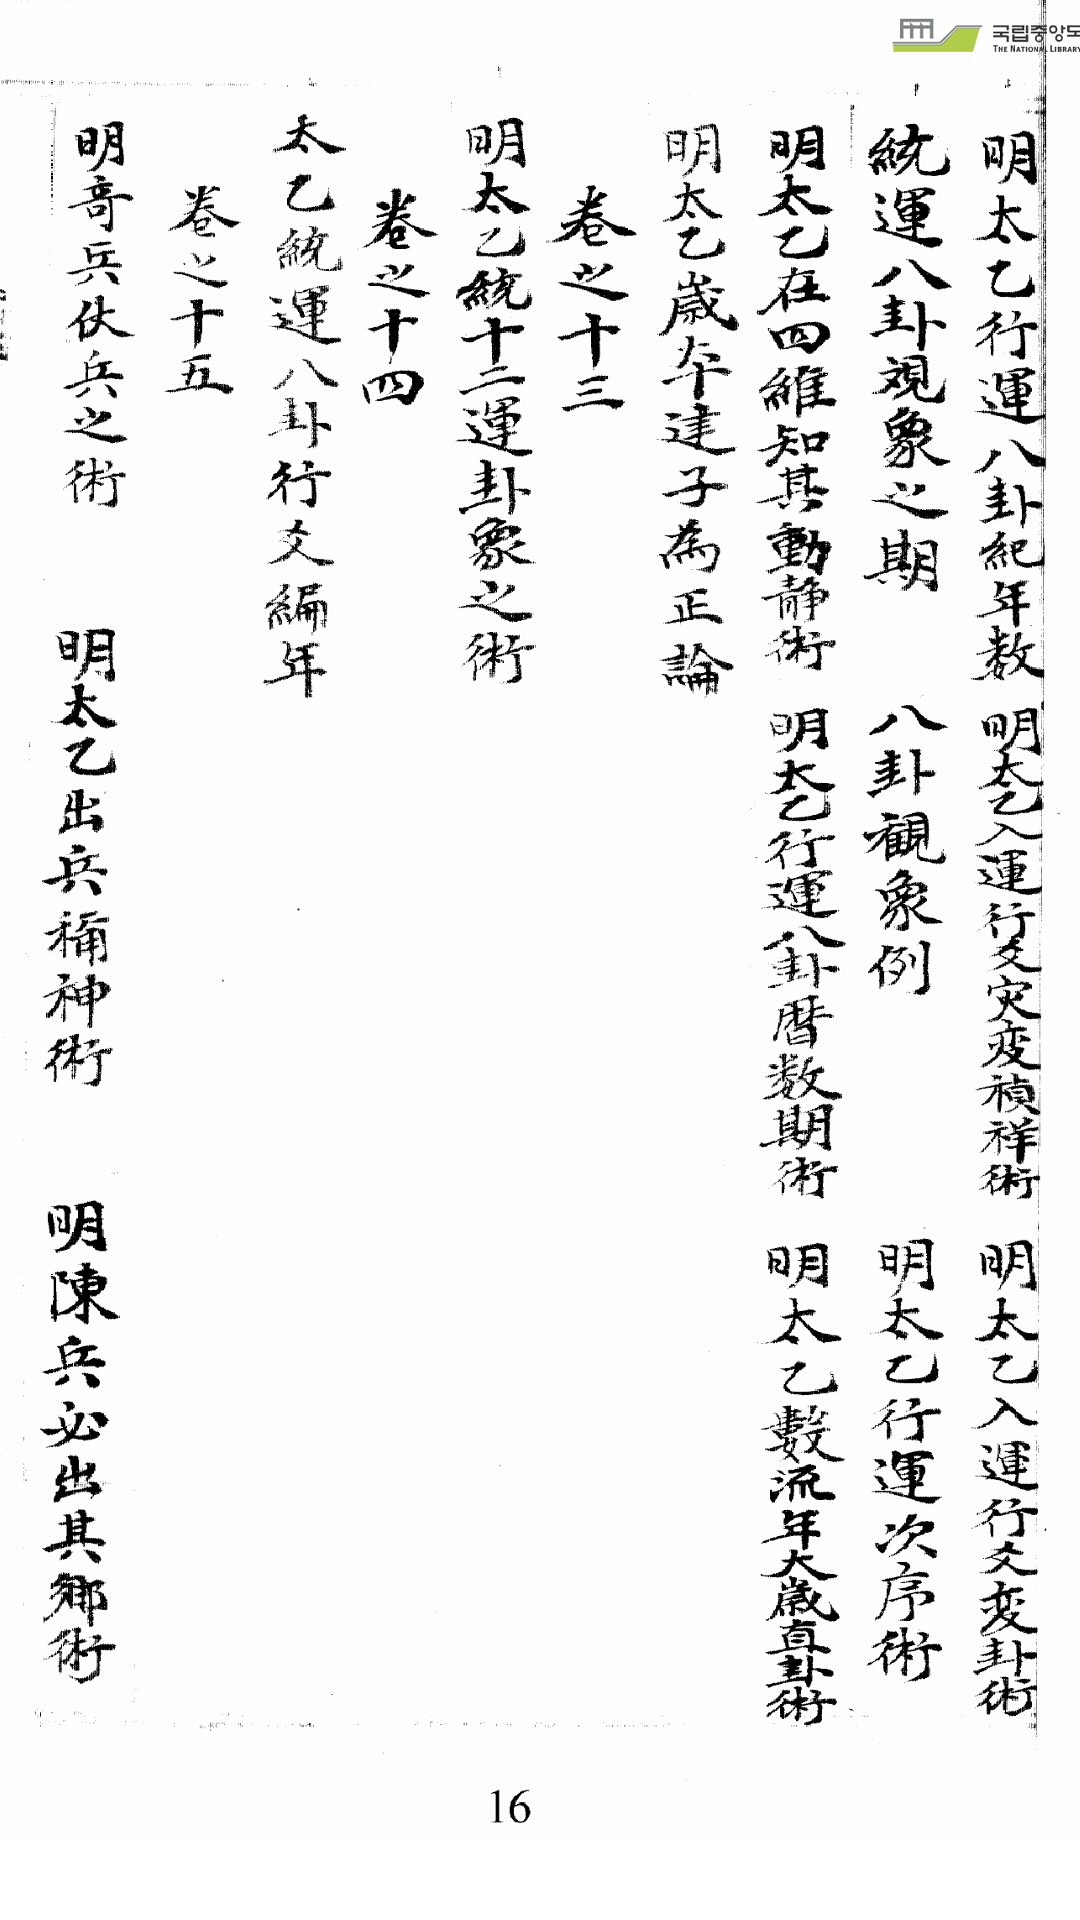 국립중앙도
THE NATIONAL LIBRARY
明太乙行運八卦紀年数 明太乙入運行爻灾変禎祥術 明太乙入運行爻変卦術
統運八卦視象之期 八卦観象例 明太乙行運次序術
明太乙在四維知其動静術 明太乙行運八卦暦数期術 明太乙數流年大歳直卦術
明太乙歳本建子為正論
卷之十三
明太乙統十二運卦象之術
卷之十四
太乙統運八卦行爻編年
卷之十五
明竒兵伏兵之術 明太乙出兵禱神術 明陳兵必出其鄉術
16